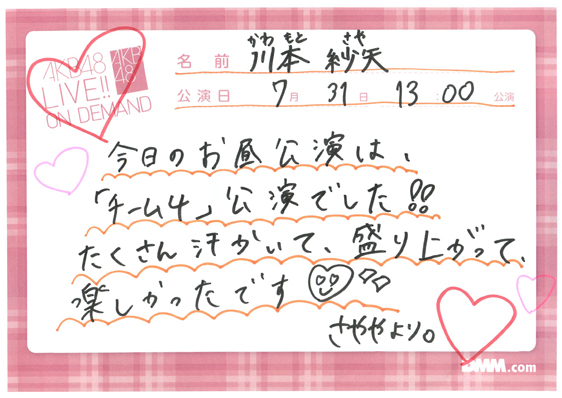 AKB48
LIVE!!
ON DEMAND
AKB
48
かわ もと さや
名前 川本 紗矢
公演日 7月 31日 13:00 公演
今日のお昼公演は、
「チーム4」公演でした!!
たくさん汗かいて、盛り上がって、
楽しかったです
さややより。
DMM.com